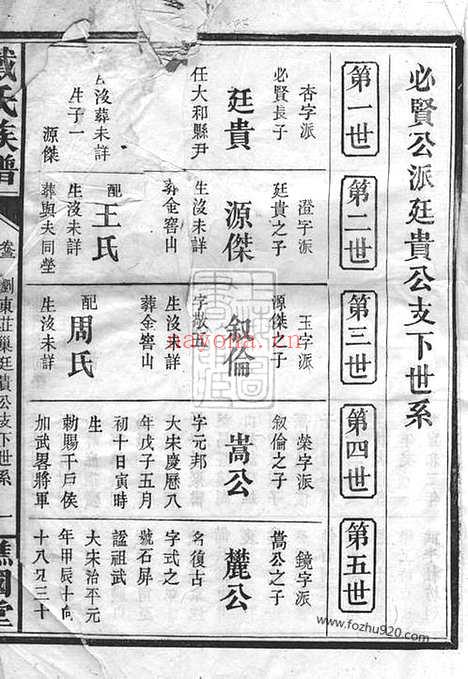 必賢公派廷貴公支下世系
第一世
杏字派
必賢長子
廷貴
任大和縣尹
生沒葬未詳
生子一
源傑
第二世
澄字派
廷貴之子
源傑
生沒未詳
葬金窖山
配
王氏
生沒未詳
葬與夫同塋
第三世
玉字派
源傑之子
叙倫
字敘五
生沒未詳
葬金窖山
配
周氏
生沒未詳
第四世
榮字派
叙倫之子
嵩公
字元邦
大宋慶曆八
年戊子五月
初十日寅時
生
勅賜千戸侯
加武畧將軍
第五世
鏡字派
嵩公之子
麓公
名復古
字式之
號石屏
諡祖武
大宋治平元
年甲辰十向
十八又三十
戴氏族譜
卷
劉東莊巢廷貴公支下世系
一
譙國堂
nayona.cn
www.fozhu920.com